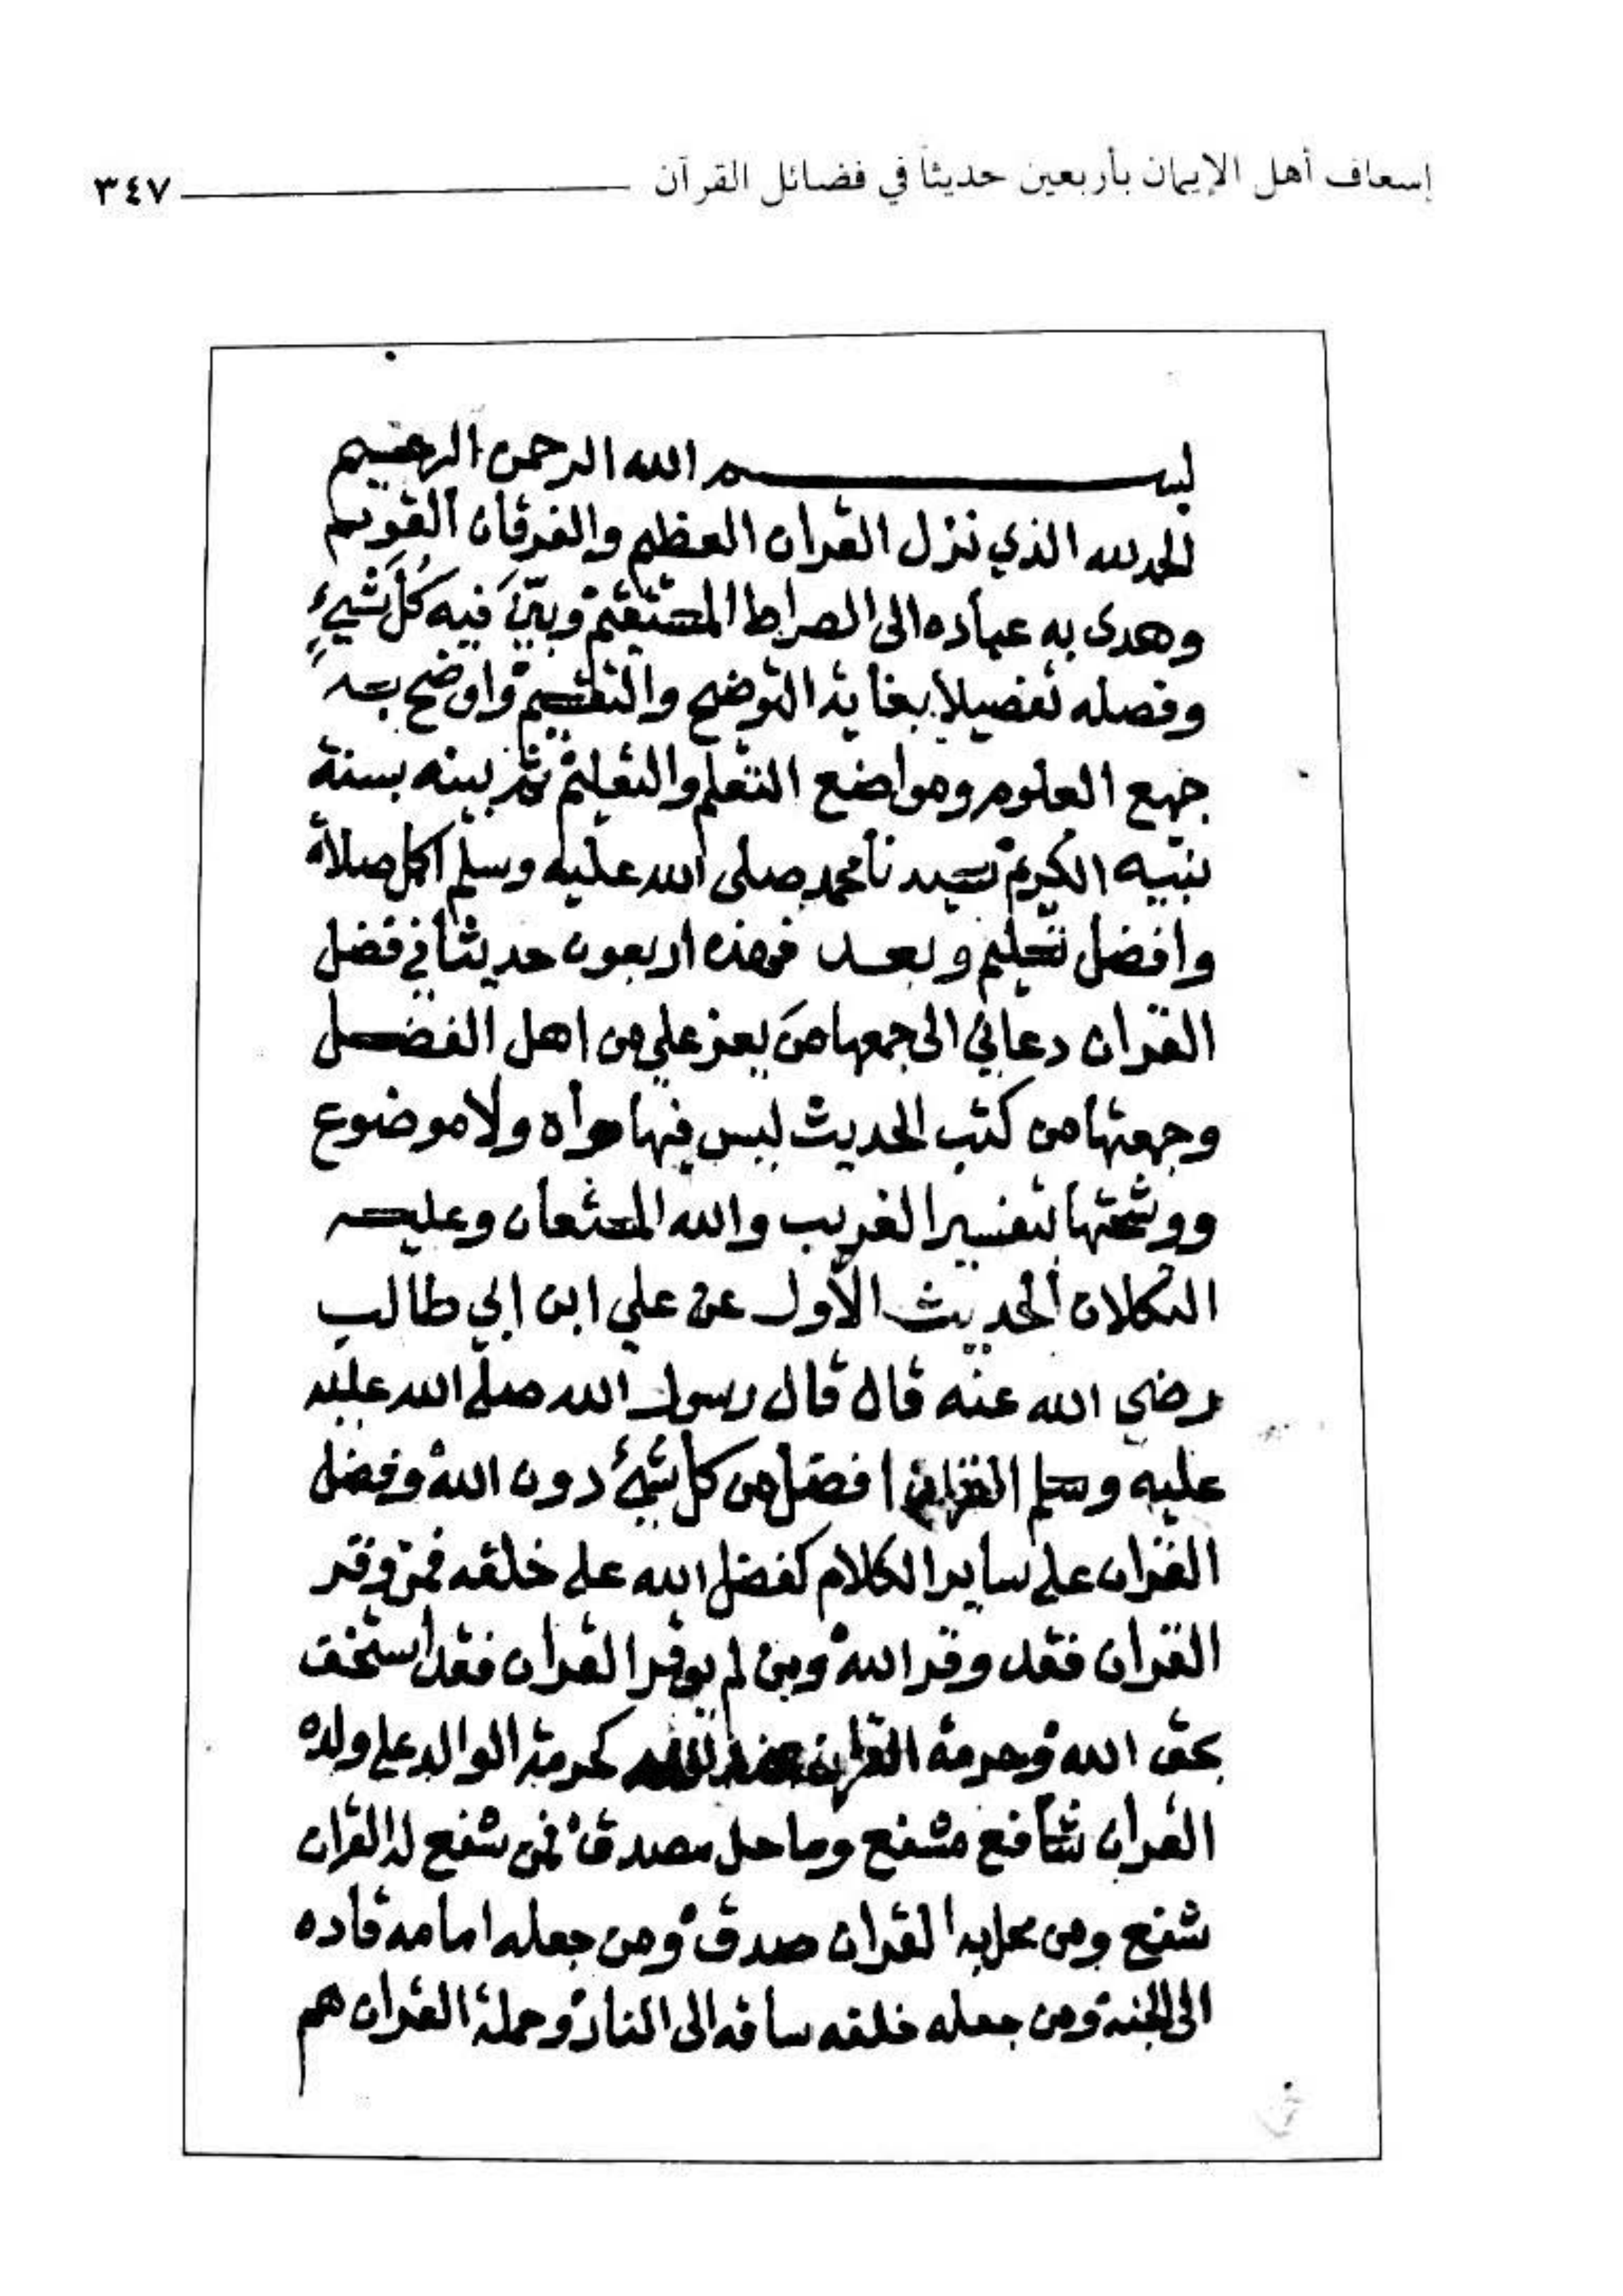 إسعاف أهل الإيمان بأربعين حديثاً في فضائل القرآن ٣٤٧
بسم الله الرحمن الرحيم
الحمد لله الذي نزل القران العظيم والفرقان القويم
وهدى به عباده الى الصراط المستقيم وبيّن فيه كل شيءٍ
وفصله تفصيلا بغاية التوضح والتقسيم واوضح به
جميع العلوم ومواضع التعلم والتعليم ثم بينه بسنة
نبيه الكريم سيدنا محمد صلى الله عليه وسلم اكمل صلاة
وافضل تسليم وبعد فهذه اربعون حديثا في فضل
القران دعاني الى جمعها من يعز علي من اهل الفضل
وجمعتها من كتب الحديث ليس فيها واه ولا موضوع
ووشحتها بتفسير الغريب والله المستعان وعليه
التكلان الحديث الأول عن علي ابن ابي طالب
رضي الله عنه قال قال رسول الله صلى الله عليه
عليه وسلم القران افضل من كل شيئ دون الله وفضل
القران على ساير الكلام كفضل الله على خلقه فمن وقر
القران فقد وقر الله ومن لم يوقر القران فقد استخف
بحق الله وحرمة القران عند الله كحرمة الوالد على ولده
القران شافع مشفع وماحل مصدق فمن شفع له القران
شفع ومن محل به القران صدق ومن جعله امامه قاده
الى الجنة ومن جعله خلفه ساقه الى النار وحملة القران هم